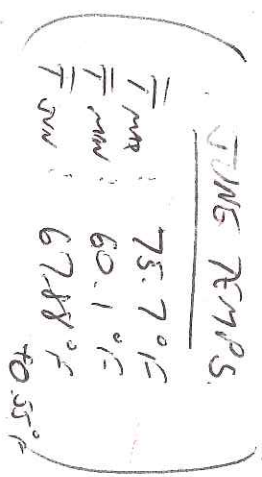 JUNE TEMPS.
T̿ MAX : 75.7°F
T̿ MIN : 60.1°F
T̿ JUN : 67.88°F
+0.55°F